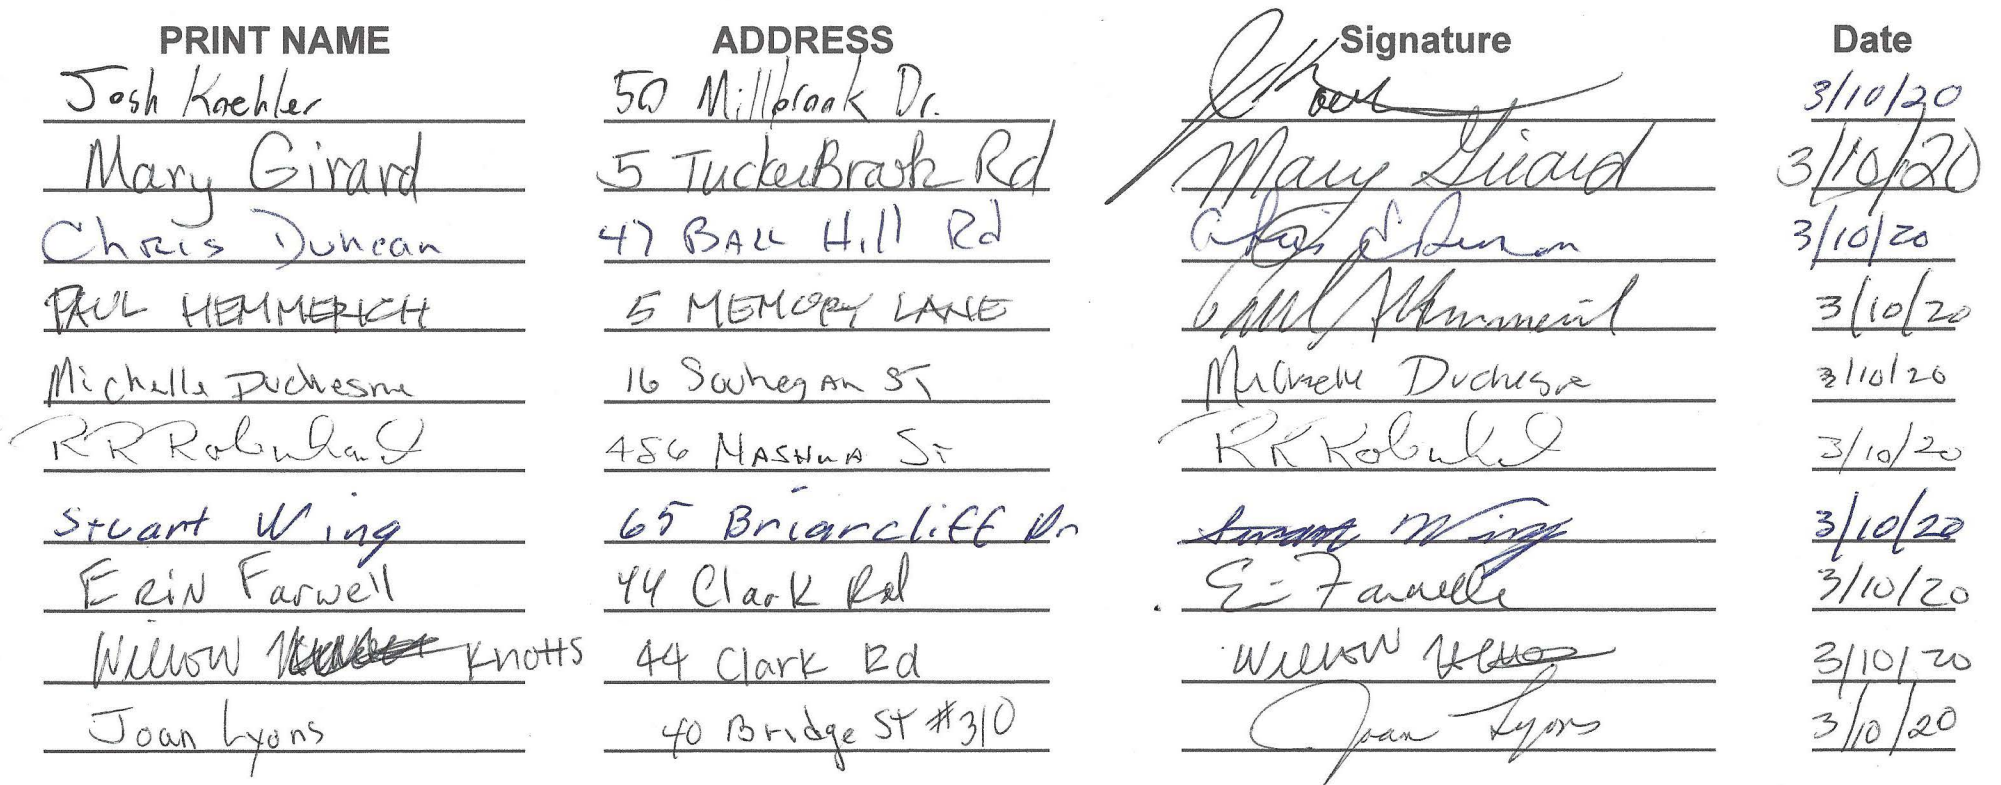 PRINT NAME ADDRESS Signature Date
Josh Koehler 50 Millbrook Dr. 3/10/20
Mary Girard 5 TuckerBrook Rd Mary Girard 3/10/20
Chris Duncan 47 Ball Hill Rd Chris Duncan 3/10/20
PAUL HEMMERICH 5 MEMORY LANE Paul Hemmerich 3/10/20
Michelle Duchesne 16 Souhegan ST Michelle Duchesne 3/10/20
RR 486 NASHUA ST RR 3/10/20
Stuart Wing 65 Briarcliff Dr Stuart Wing 3/10/20
ERIN Farwell 44 Clark Rd Farwell 3/10/20
Willow Knotts 44 Clark Rd Willow 3/10/20
Joan Lyons 40 Bridge ST #310 Joan Lyons 3/10/20